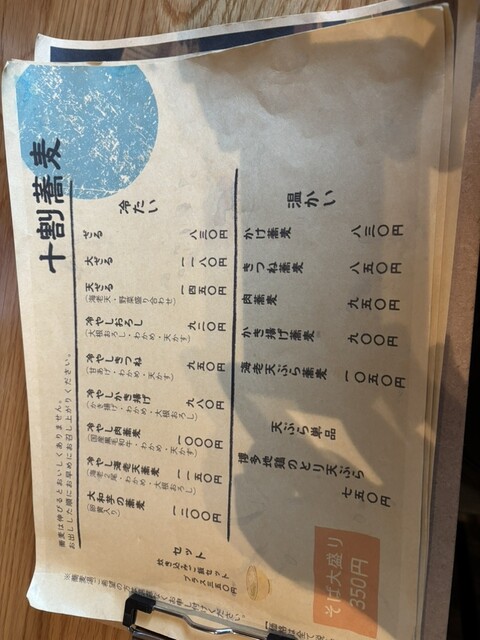 十割蕎麦
冷たい
ざる 八三〇円
大ざる 一一八〇円
天ざる 一四五〇円
(海老天・野菜盛り合わせ)
冷やしおろし 九二〇円
(大根おろし・わかめ・天かす)
冷やしきつね 九五〇円
(甘あげ・わかめ・天かす)
冷やしかき揚げ 九八〇円
(かき揚げ・わかめ・大根おろし)
冷やし肉蕎麦 一〇〇〇円
(国産黒毛和牛・わかめ・天かす)
冷やし海老天蕎麦 一一五〇円
(海老2尾・わかめ・大根おろし)
大和芋の蕎麦 一二〇〇円
(卵黄入り)
温かい
かけ蕎麦 八三〇円
きつね蕎麦 八五〇円
肉蕎麦 九五〇円
かき揚げ蕎麦 九〇〇円
海老天ぷら蕎麦 一〇五〇円
天ぷら単品
博多地鶏のとり天ぷら 七五〇円
セット
炊き込みご飯セット
プラス三五〇円
そば大盛り
350円
蕎麦は伸びるとおいしくありません。
お出しした順にお早めにお召し上がりください。